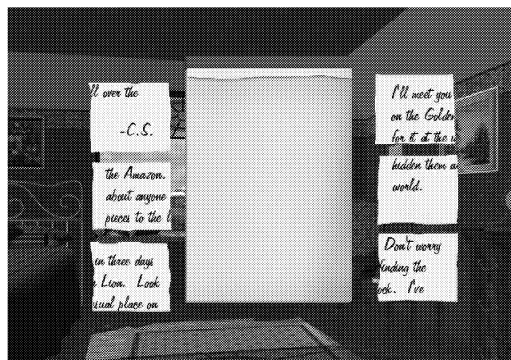 ll over the
-C.S.
the Amazon.
about anyone
pieces to the l
in three days
Lion. Look
sual place on
I'll meet you
on the Golden
for it at the
hidden them a
world.
Don't worry
finding the
ock. I've